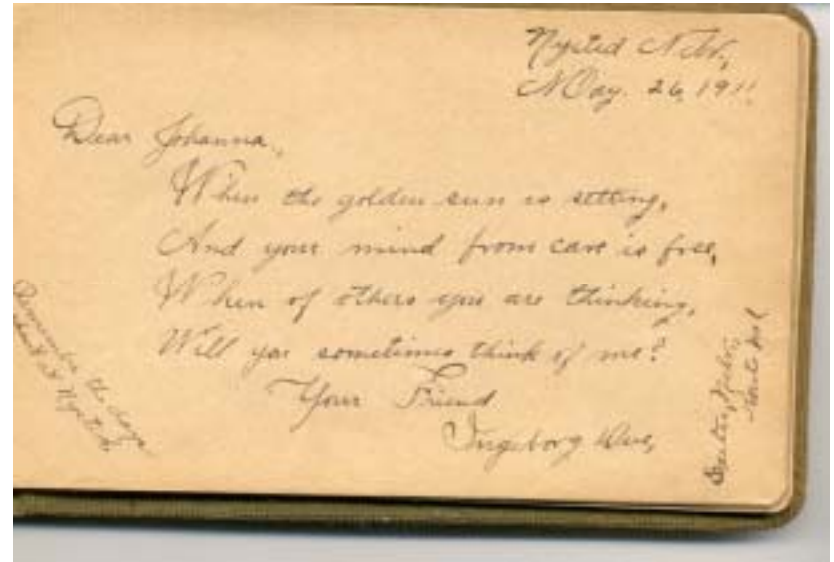 Nysted Nebr,
May. 26, 1911.
Dear Johanna,
When the golden sun is setting,
And your mind from care is free,
When of others you are thinking,
Will you sometimes think of me?
Your Friend
Ingeborg
Remember the days
at Nysted
Nebr,
Route No 1